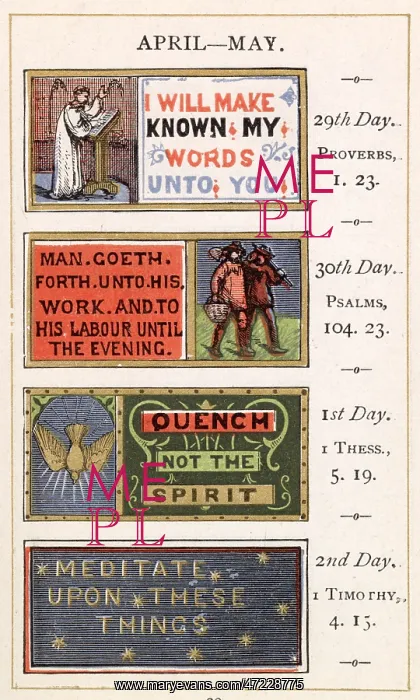 APRIL—MAY.
I WILL MAKE
KNOWN MY
WORDS
UNTO YOU.
—o—
29th Day.
PROVERBS,
1. 23.
—o—
MAN.GOETH.
FORTH.UNTO.HIS,
WORK.AND.TO
HIS LABOUR UNTIL
THE EVENING.
30th Day.
PSALMS,
104. 23.
—o—
QUENCH
NOT THE
SPIRIT
1st Day.
1 THESS.,
5. 19.
—o—
MEDITATE
UPON THESE
THINGS
2nd Day.
1 TIMOTHY,
4. 15.
—o—
ME
PL
ME
PL
www.maryevans.com/47228775